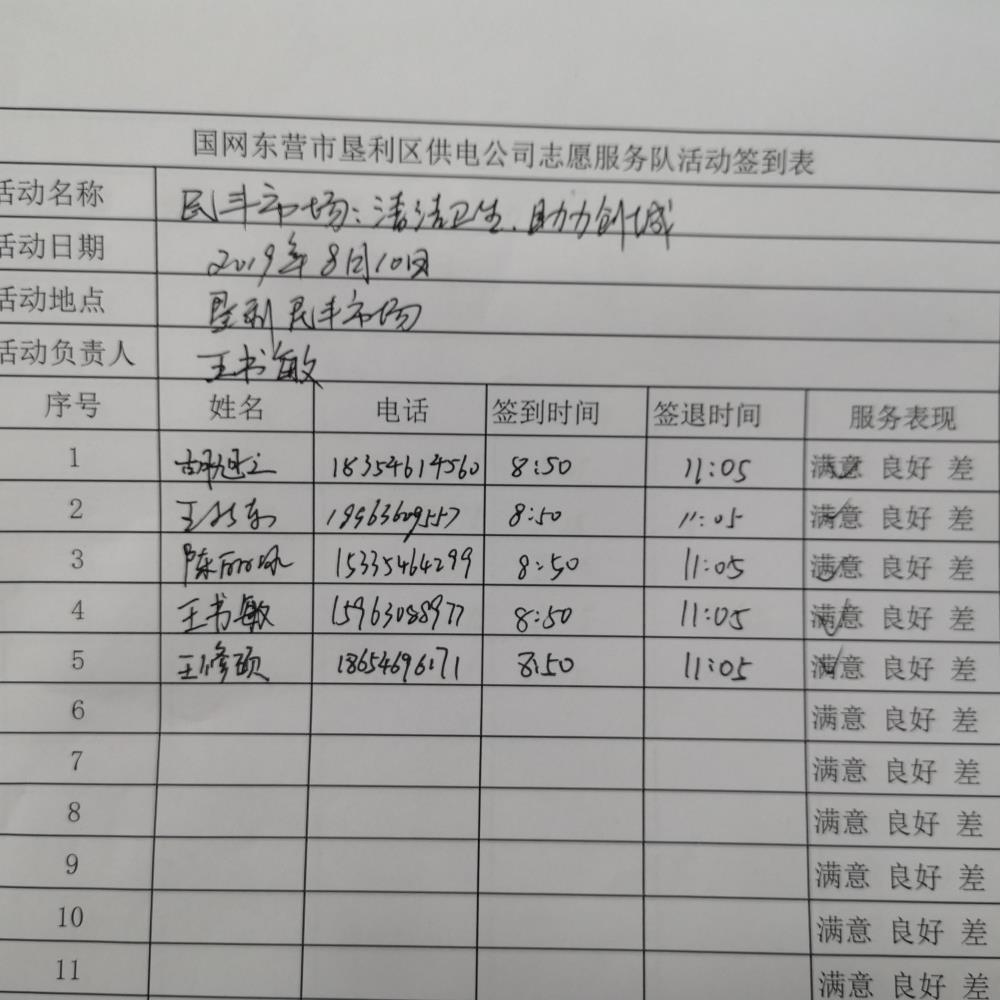 国网东营市垦利区供电公司志愿服务队活动签到表
活动名称 民丰市场：清洁卫生、助力创城
活动日期 2019年8月10日
活动地点 垦利民丰市场
活动负责人 王书敏
序号 姓名 电话 签到时间 签退时间 服务表现
1 18354614560 8:50 11:05 满意 良好 差
2 8:50 11:05 满意 良好 差
3 陈丽咏 15335464299 8:50 11:05 满意 良好 差
4 王书敏 15963088977 8:50 11:05 满意 良好 差
5 王修硕 18654696171 8:50 11:05 满意 良好 差
6 满意 良好 差
7 满意 良好 差
8 满意 良好 差
9 满意 良好 差
10 满意 良好 差
11 满意 良好 差